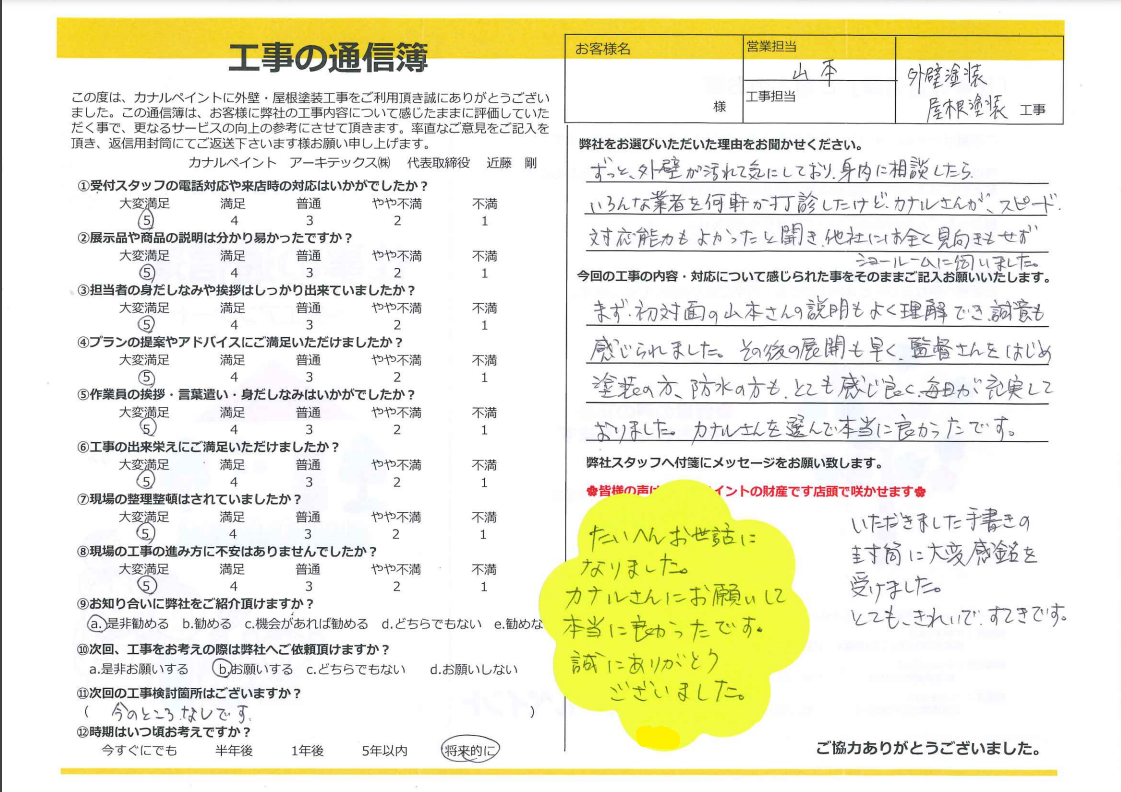 工事の通信簿
この度は、カナルペイントに外壁・屋根塗装工事をご利用頂き誠にありがとうござい
ました。この通信簿は、お客様に弊社の工事内容について感じたままに評価していた
だく事で、更なるサービスの向上の参考にさせて頂きます。率直なご意見をご記入を
頂き、返信用封筒にてご返送下さいます様お願い申し上げます。
カナルペイント アーキテックス㈱ 代表取締役 近藤 剛
①受付スタッフの電話対応や来店時の対応はいかがでしたか？
大変満足 満足 普通 やや不満 不満
5 4 3 2 1
②展示品や商品の説明は分かり易かったですか？
大変満足 満足 普通 やや不満 不満
5 4 3 2 1
③担当者の身だしなみや挨拶はしっかり出来ていましたか？
大変満足 満足 普通 やや不満 不満
5 4 3 2 1
④プランの提案やアドバイスにご満足いただけましたか？
大変満足 満足 普通 やや不満 不満
5 4 3 2 1
⑤作業員の挨拶・言葉遣い・身だしなみはいかがでしたか？
大変満足 満足 普通 やや不満 不満
5 4 3 2 1
⑥工事の出来栄えにご満足いただけましたか？
大変満足 満足 普通 やや不満 不満
5 4 3 2 1
⑦現場の整理整頓はされていましたか？
大変満足 満足 普通 やや不満 不満
5 4 3 2 1
⑧現場の工事の進み方に不安はありませんでしたか？
大変満足 満足 普通 やや不満 不満
5 4 3 2 1
⑨お知り合いに弊社をご紹介頂けますか？
a.是非勧める b.勧める c.機会があれば勧める d.どちらでもない e.勧めな
⑩次回、工事をお考えの際は弊社へご依頼頂けますか？
a.是非お願いする b.お願いする c.どちらでもない d.お願いしない
⑪次回の工事検討箇所はございますか？
( 今のところ、なしです。 )
⑫時期はいつ頃お考えですか？
今すぐにでも 半年後 1年後 5年以内 将来的に
お客様名
様
営業担当
山本
工事担当
外壁塗装
屋根塗装 工事
弊社をお選びいただいた理由をお聞かせください。
ずっと、外壁が汚れて気にしており、身内に相談したら
いろんな業者を何軒か打診したけど、カナルさんが、スピード、
対応能力もよかったと聞き、他社には全く見向きもせず
ショールームに伺いました。
今回の工事の内容・対応について感じられた事をそのままご記入お願いいたします。
まず、初対面の山本さんの説明もよく理解でき、誠意も
感じられました。その後の展開も早く、監督さんをはじめ
塗装の方、防水の方も、とても感じ良く、毎日が充実して
おりました。カナルさんを選んで本当に良かったです。
弊社スタッフへ付箋にメッセージをお願い致します。
✿皆様の声は ペイントの財産です店頭で咲かせます✿
たいへんお世話に
なりました。
カナルさんにお願いして
本当に良かったです。
誠にありがとう
ございました。
いただきました手書きの
封筒に大変感銘を
受けました。
とても、きれいで、すてきです。
ご協力ありがとうございました。